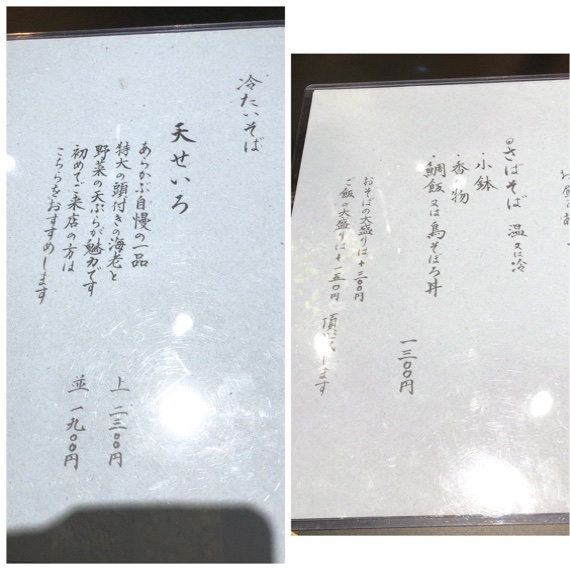 冷たいそば
天せいろ
あらかぶ自慢の一品
特大の頭付きの海老と
野菜の天ぷらが魅力です
初めてご来店の方は
こちらをおすすめします
上 二三〇〇円
並 一九〇〇円
さばそば 温又は冷
・小鉢
・香の物
鯛飯又は鳥そぼろ丼
一三〇〇円
おそばの大盛りは+三〇〇円
ご飯の大盛りは+一五〇円 頂
します